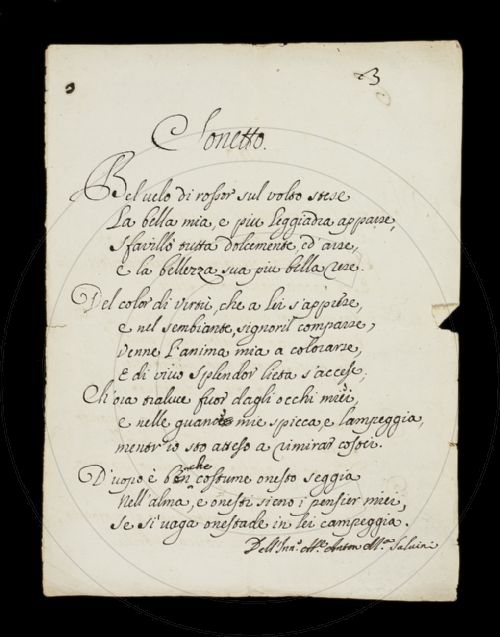 3
Sonetto.
Bel velo di rossor sul volto stese
La bella mia, e piu leggiadra apparse,
sfavillò tutta dolcemente, ed arse,
e la bellezza sua piu bella rese.
Del color di virtù, che a lei s'apprese,
e nel sembiante, signoril comparse,
venne l'anima mia a colorarse,
E di vivo splendor lieta s'accese;
Ch'ora traluce fuor dagli occhi miei,
e nelle guance mie spicca, e lampeggia,
mentr'io sto atteso a rimirar costei.
D'uopo è ben che costume onesto seggia
Nell'alma, e onesti sieno i pensier miei,
se sì vaga onestade in lei campeggia.
Dell' Anton Ma Salvini